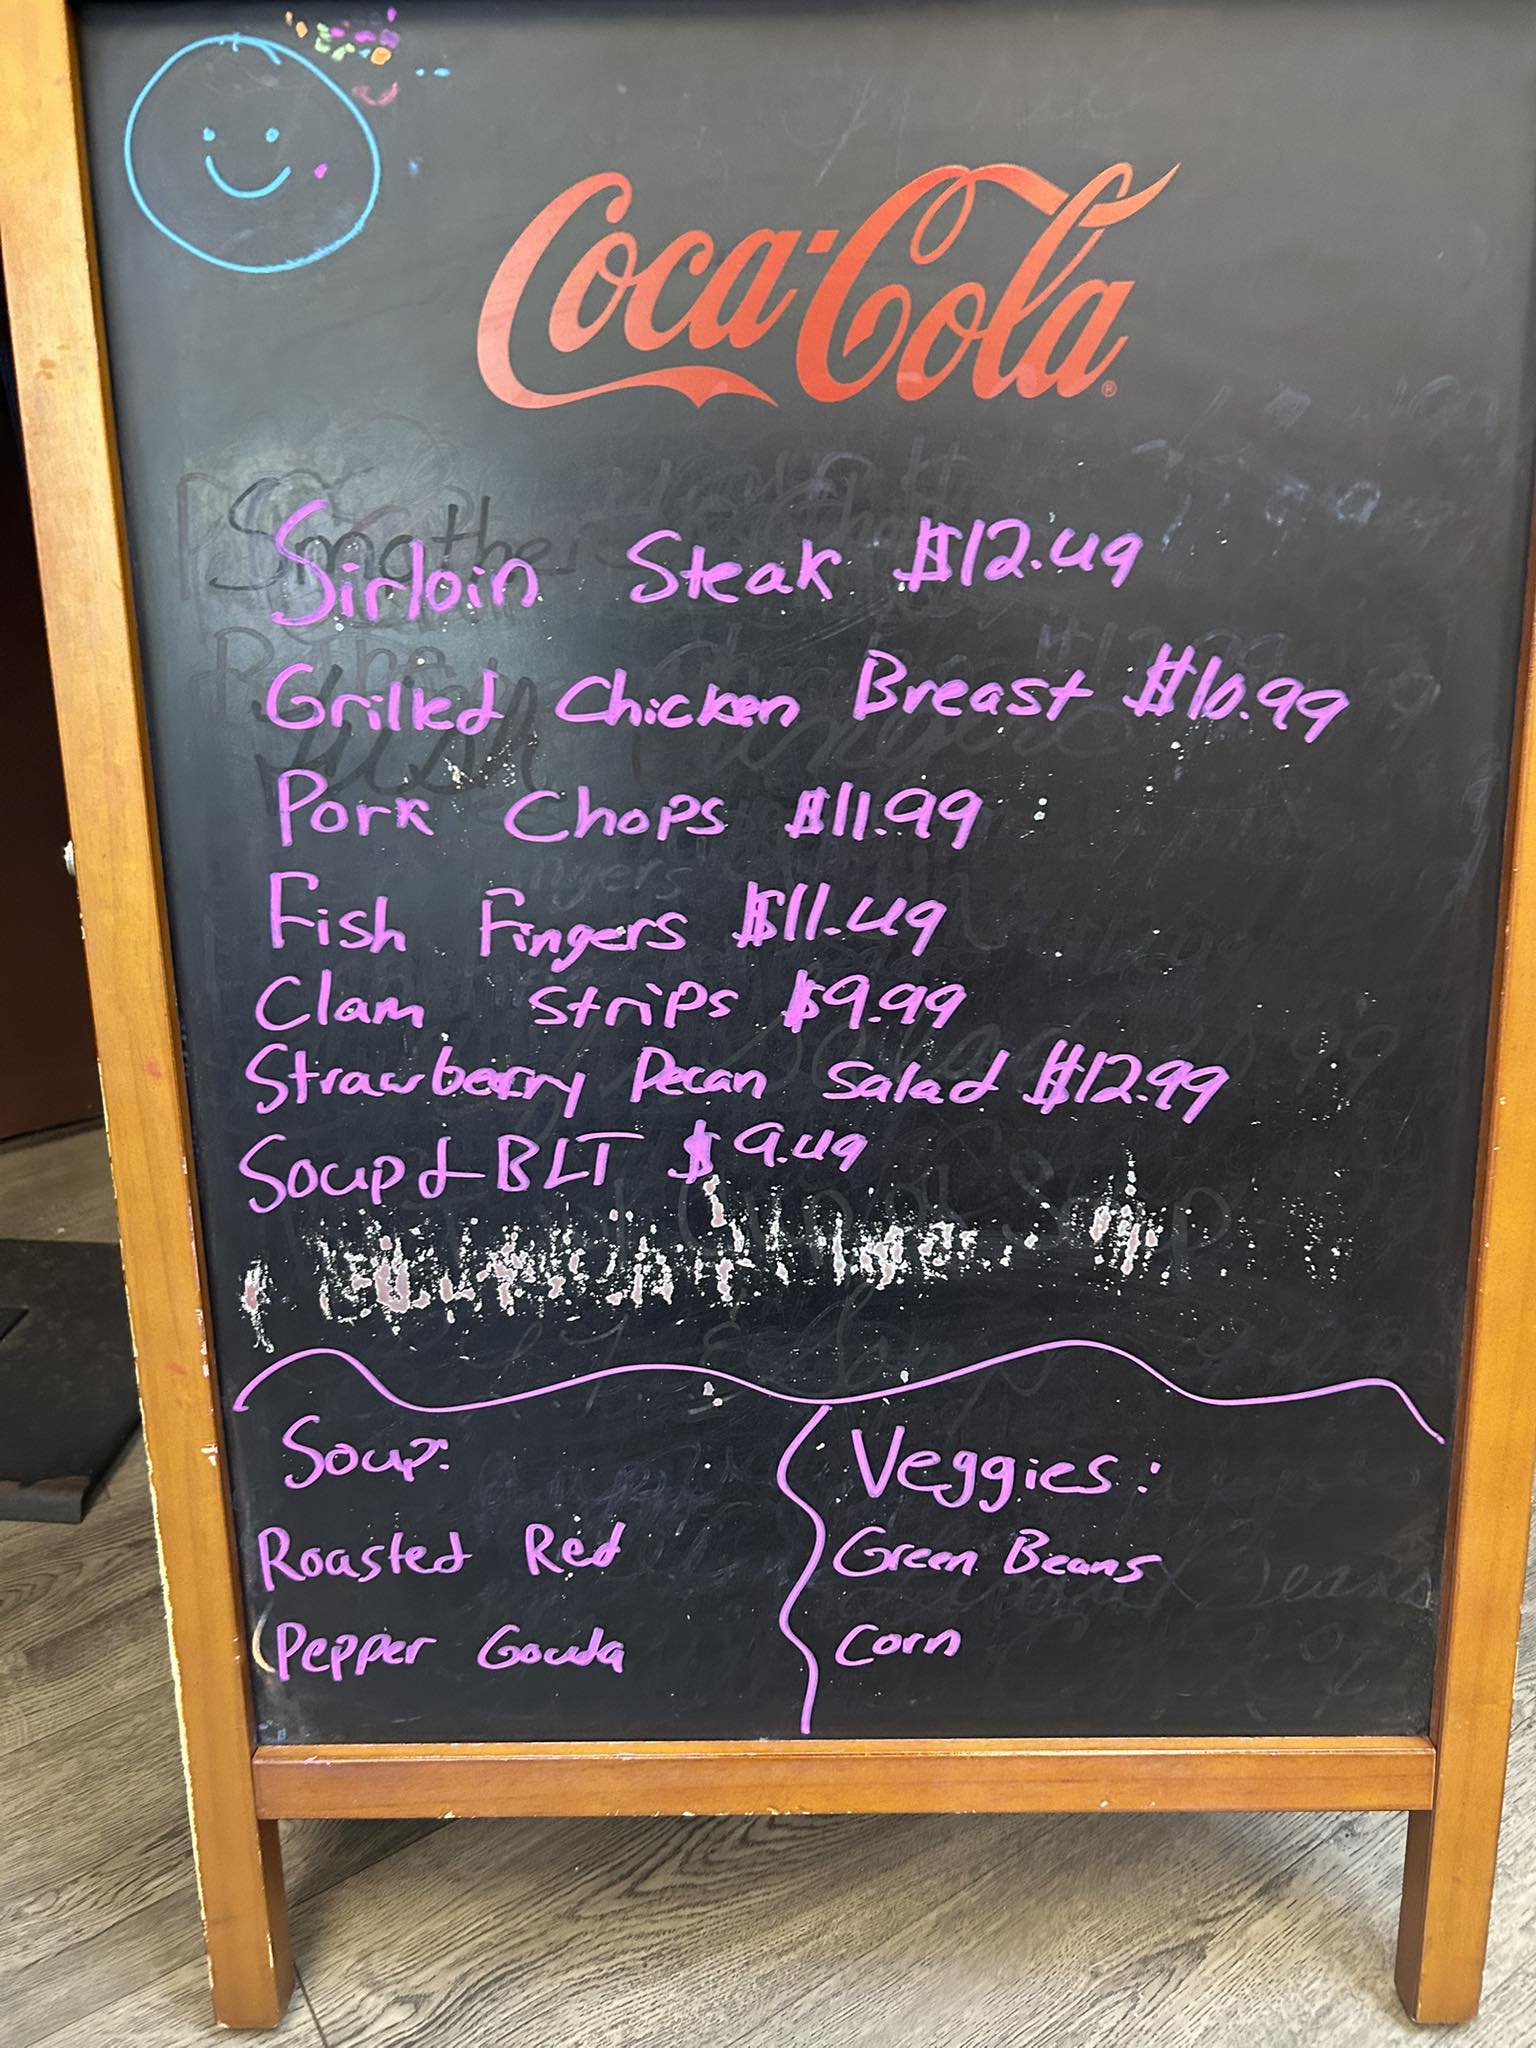 Coca-Cola®
Sirloin Steak $12.49
Grilled Chicken Breast $10.99
Pork Chops $11.99
Fish Fingers $11.49
Clam strips $9.99
Strawberry Pecan Salad $12.99
Soup & BLT $9.49
Soup:
Roasted Red
Pepper Gouda
Veggies:
Green Beans
Corn